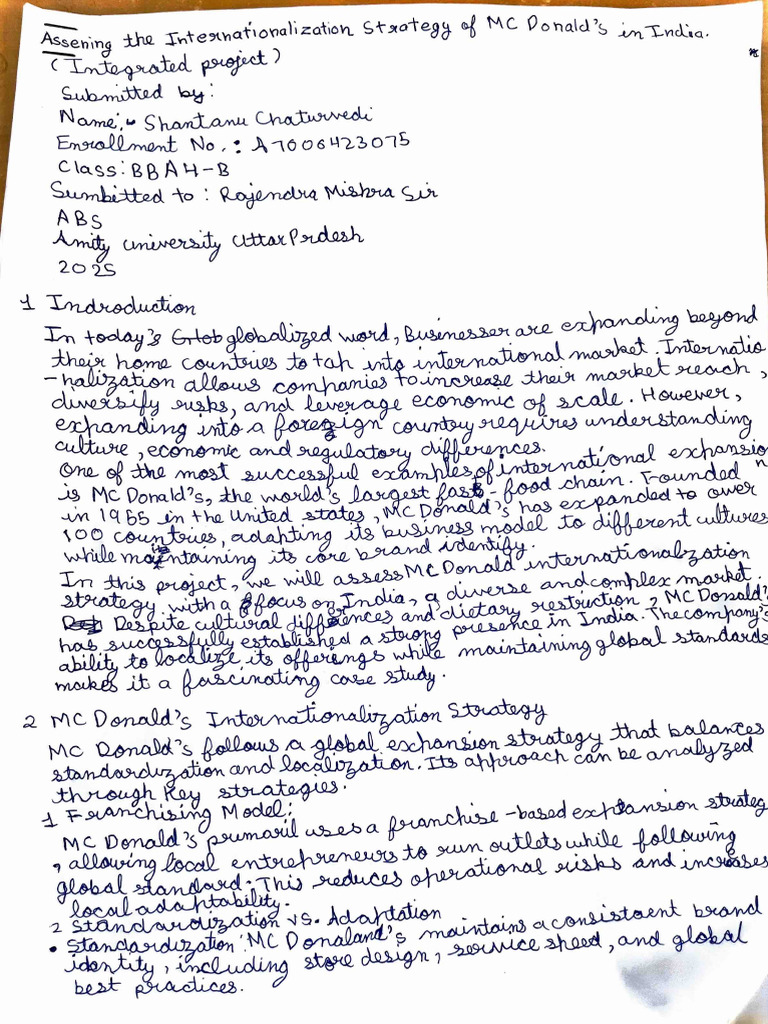 Assening the Internationalization Strategy of MC Donald's in India.
(Integrated project)
Submitted by:
Name:- Shantanu Chaturvedi
Enrollment No.: A7006423075
Class: BBA4-B
Sumbitted to: Rajendra Mishra Sir
ABS
Amity university Uttar Prdesh
2025
1 Indroduction
In today's globalized word, Businesser are expanding beyond
their home countries to tap into international market. Internatio
-nalization allows companies to increase their market reach,
diversify risks, and leverage economic of scale. However,
expanding into a foreign country requires understanding
culture, economic and regulatory differences.
One of the most successful examples of international expansion
is MC Donald's, the world's largest fast-food chain. Founded
in 1955 in the United states, MC Donald's has expanded to over
100 countries, adapting its business model to different cultures
while maintaining its core brand identify.
In this project, we will assess MC Donald internationalization
strategy with a focus on India, a diverse and complex market.
Despite cultural differences and dietary restriction, MC Donald's
has successfully established a strong presence in India. The company's
ability to localize its offerings while maintaining global standards
makes it a fascinating case study.
2 MC Donald's Internationalization Strategy
MC Donald's follows a global expansion strategy that balances
standardization and localization. Its approach can be analyzed
through key strategies.
1 Franchising Model:
MC Donald's primaril uses a franchise-based expansion strateg
, allowing local entrepreneurs to run outlets while following
global standard. This reduces operational risks and increases
local adaptability.
2 Standardization vs. Adaptation
• Standardization: MC Donaland's maintains a consistaent brand
identity, including store design, service speed, and global
best practices.